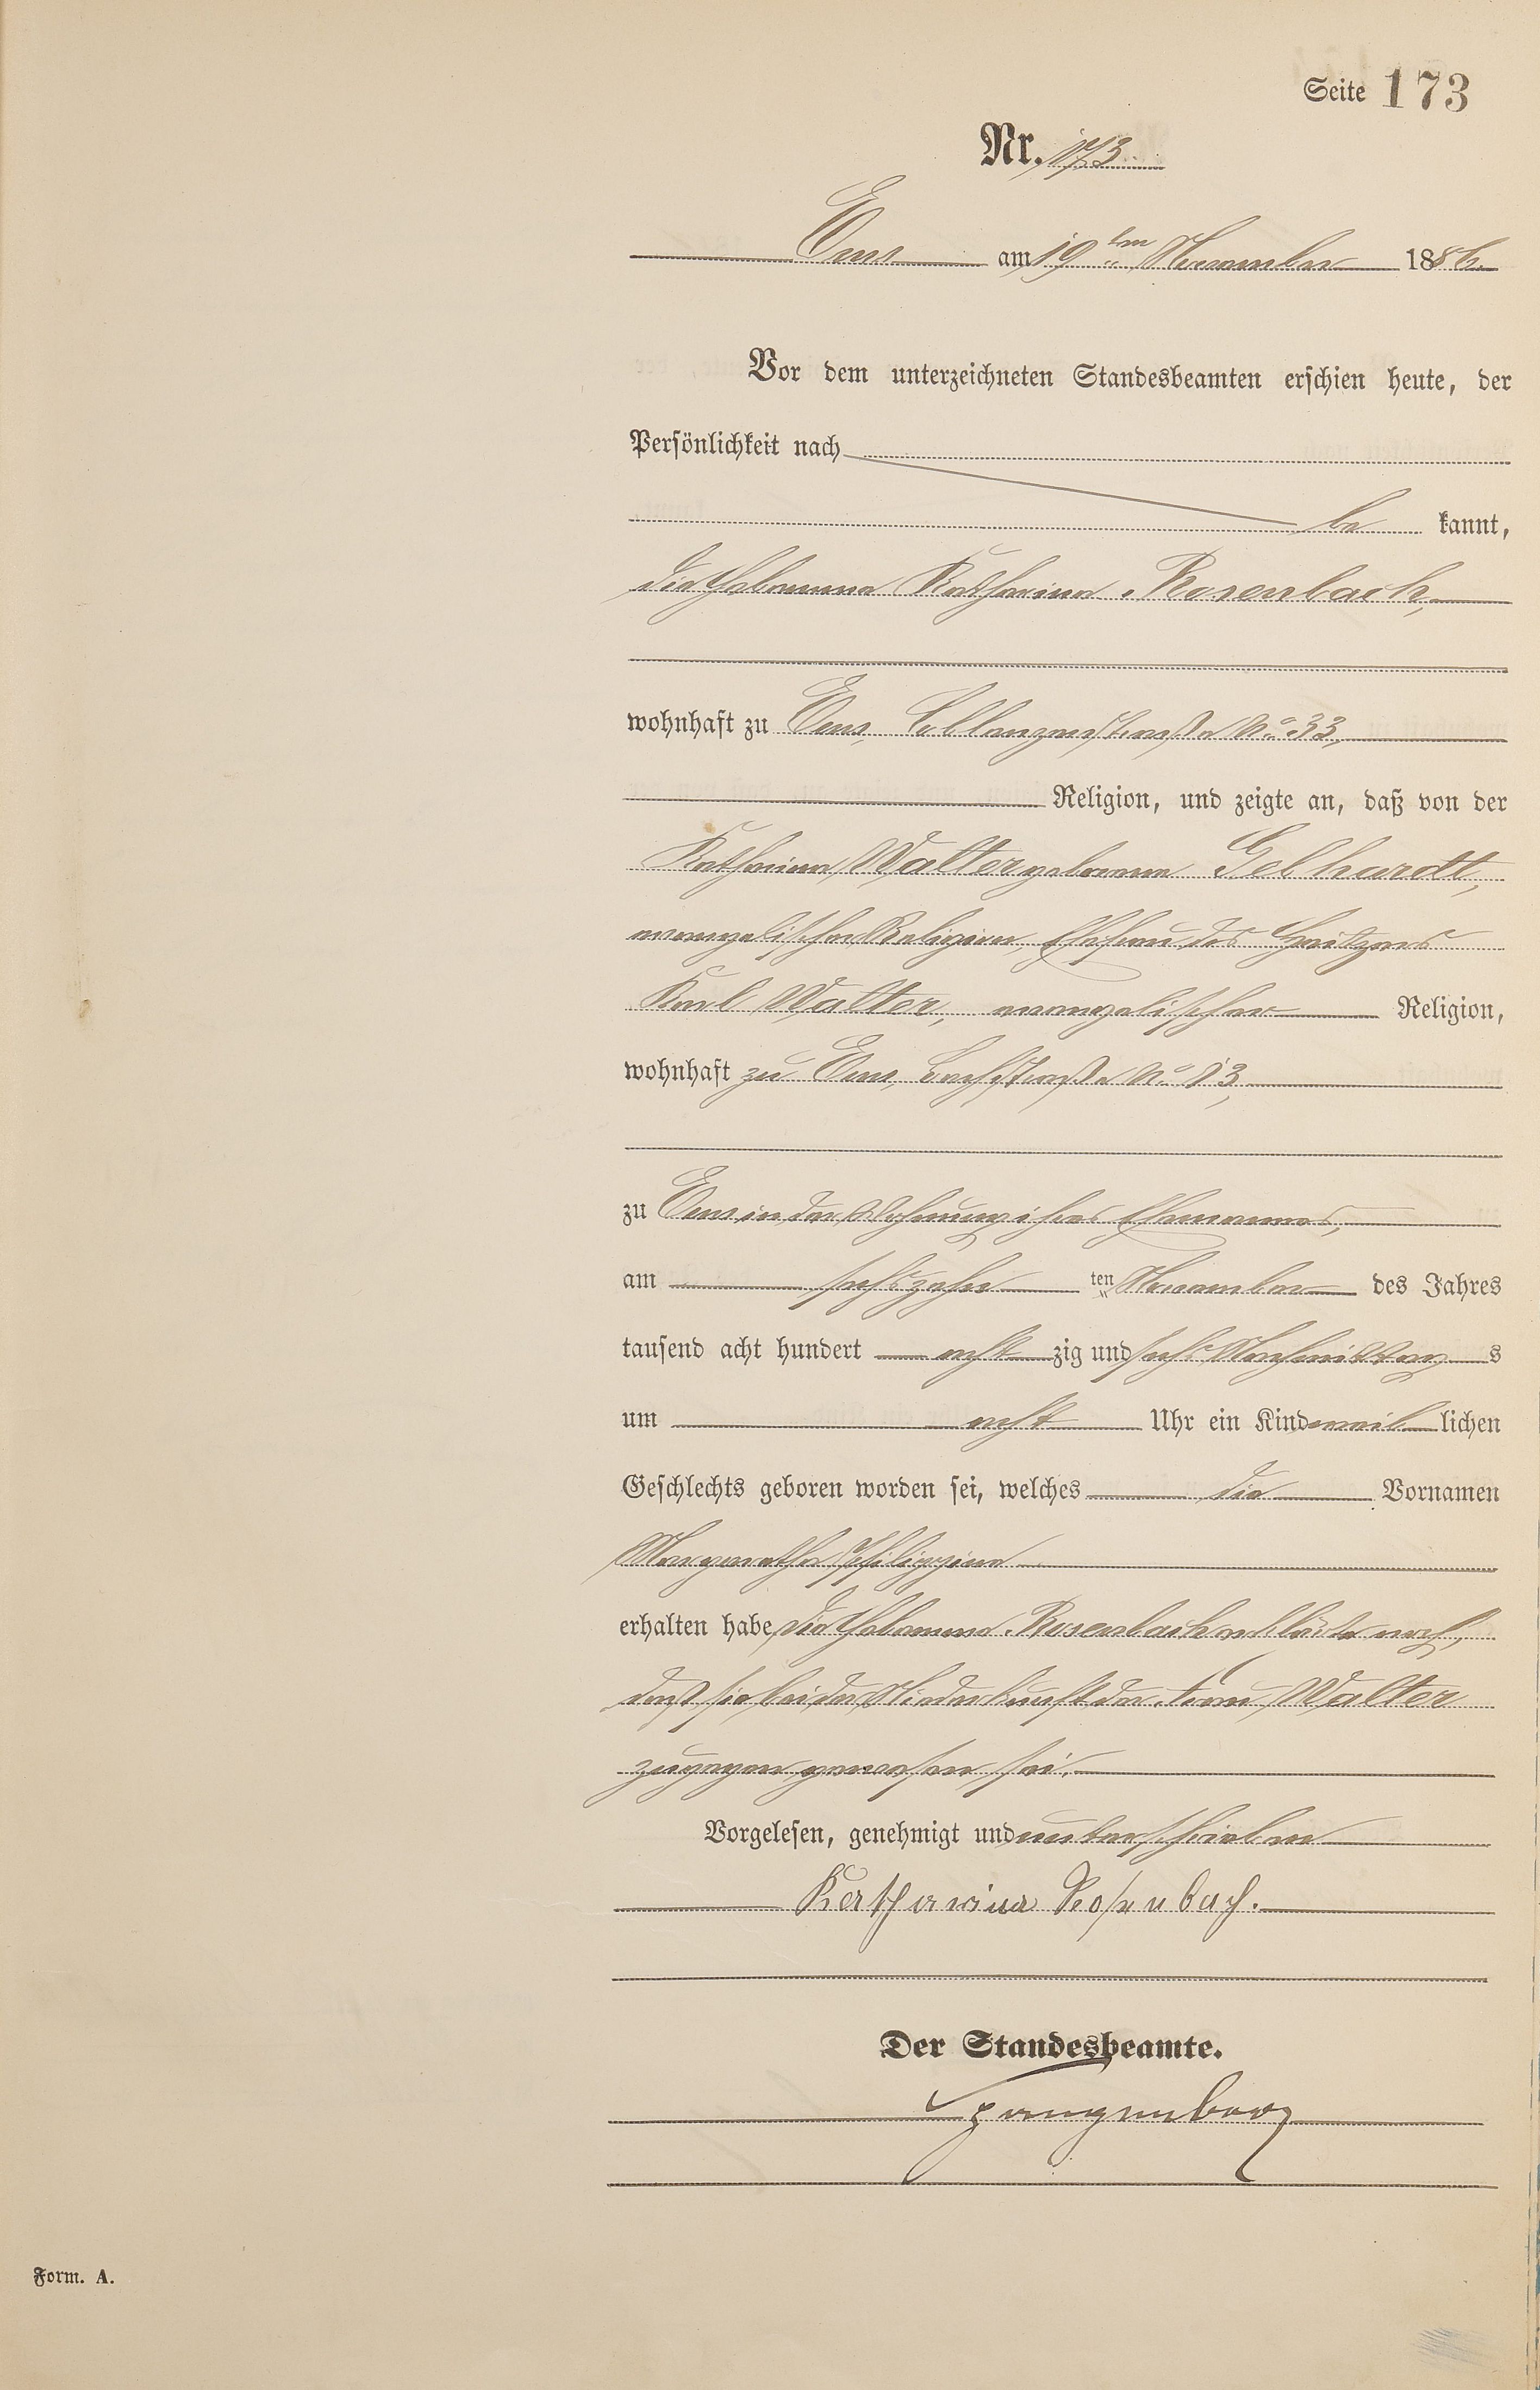 Seite 173
Nr. 173
Ems am 19ten November 1886.
Vor dem unterzeichneten Standesbeamten erschien heute, der
Persönlichkeit nach
be kannt,
die Hebamme Katharina Rosenbach,
wohnhaft zu Ems, Coblenzerstraße No 33,
Religion, und zeigte an, daß von der
Katharina Walter geborene Gebhardt,
evangelischer Religion, Ehefrau des
Karl Walter, evangelischer Religion,
wohnhaft zu Ems, Bachstraße No 13,
zu Ems in der Wohnung ihres Ehemannes,
am sechszehn ten November des Jahres
tausend acht hundert acht zig und sechs Nachmittag s
um acht Uhr ein Kind weib lichen
Geschlechts geboren worden sei, welches die Vornamen
Margaretha Philippine
erhalten habe, die Hebamme Rosenbach erklärte noch,
daß sie bei der Niederkunft der Frau Walter
zugegen gewesen sei.
Vorgelesen, genehmigt und unterschrieben
Katharina Rosenbach.
Der Standesbeamte.
Spangenberg
Form. A.